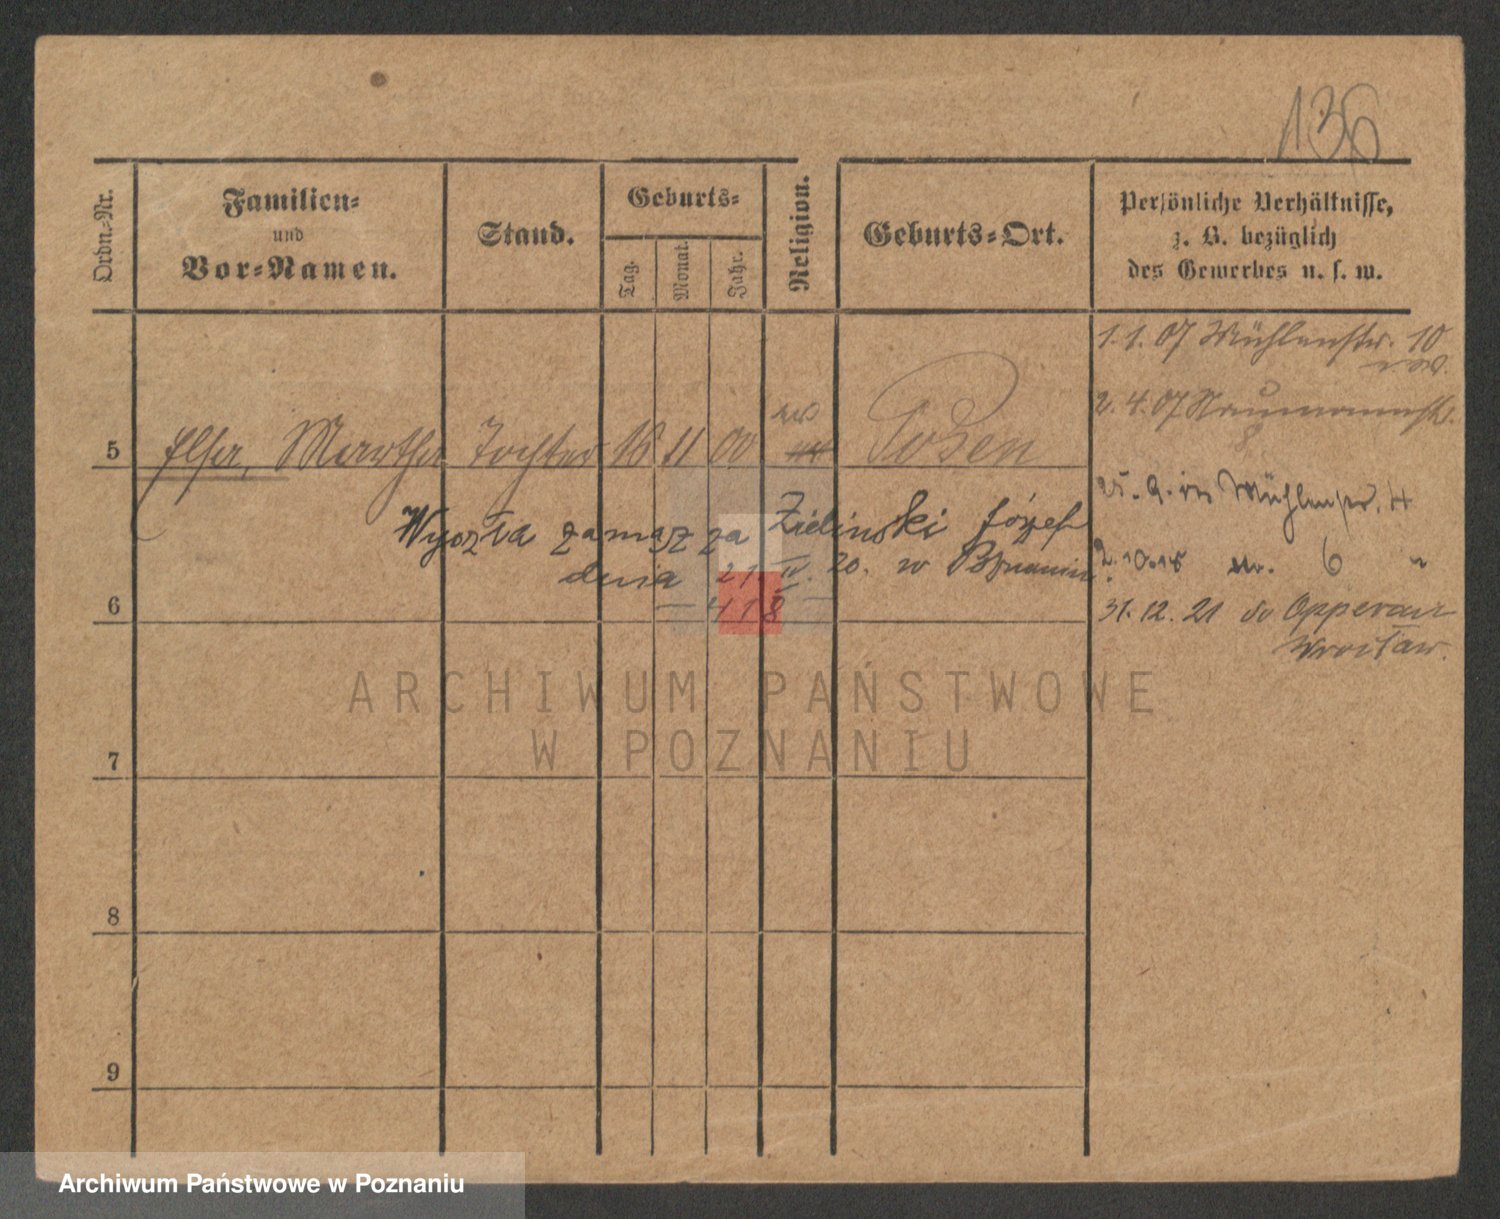 136
Ordn.-Nr.
Familien-
und
Vor-Namen.
Stand.
Geburts-
Tag.
Monat.
Jahr.
Religion.
Geburts-Ort.
Persönliche Verhältnisse,
z. B. bezüglich
des Gewerbes u. s. w.
1. 1. 07 Mühlenstr. 10
2. 4. 07 Naumannstr.
8
5 Elsa, Martha Tochter 18 11 00 Posen
25. 9. Mühlenstr. 4
Wyszła zamąz za Zieliński Józef
dnia 21. IV. 20. w Poznaniu
2. 10. 18 6 "
— 418 —
6
31. 12. 21 do Opperau
Wrocław.
ARCHIWUM PAŃSTWOWE
W POZNANIU
7
8
9
Archiwum Państwowe w Poznaniu